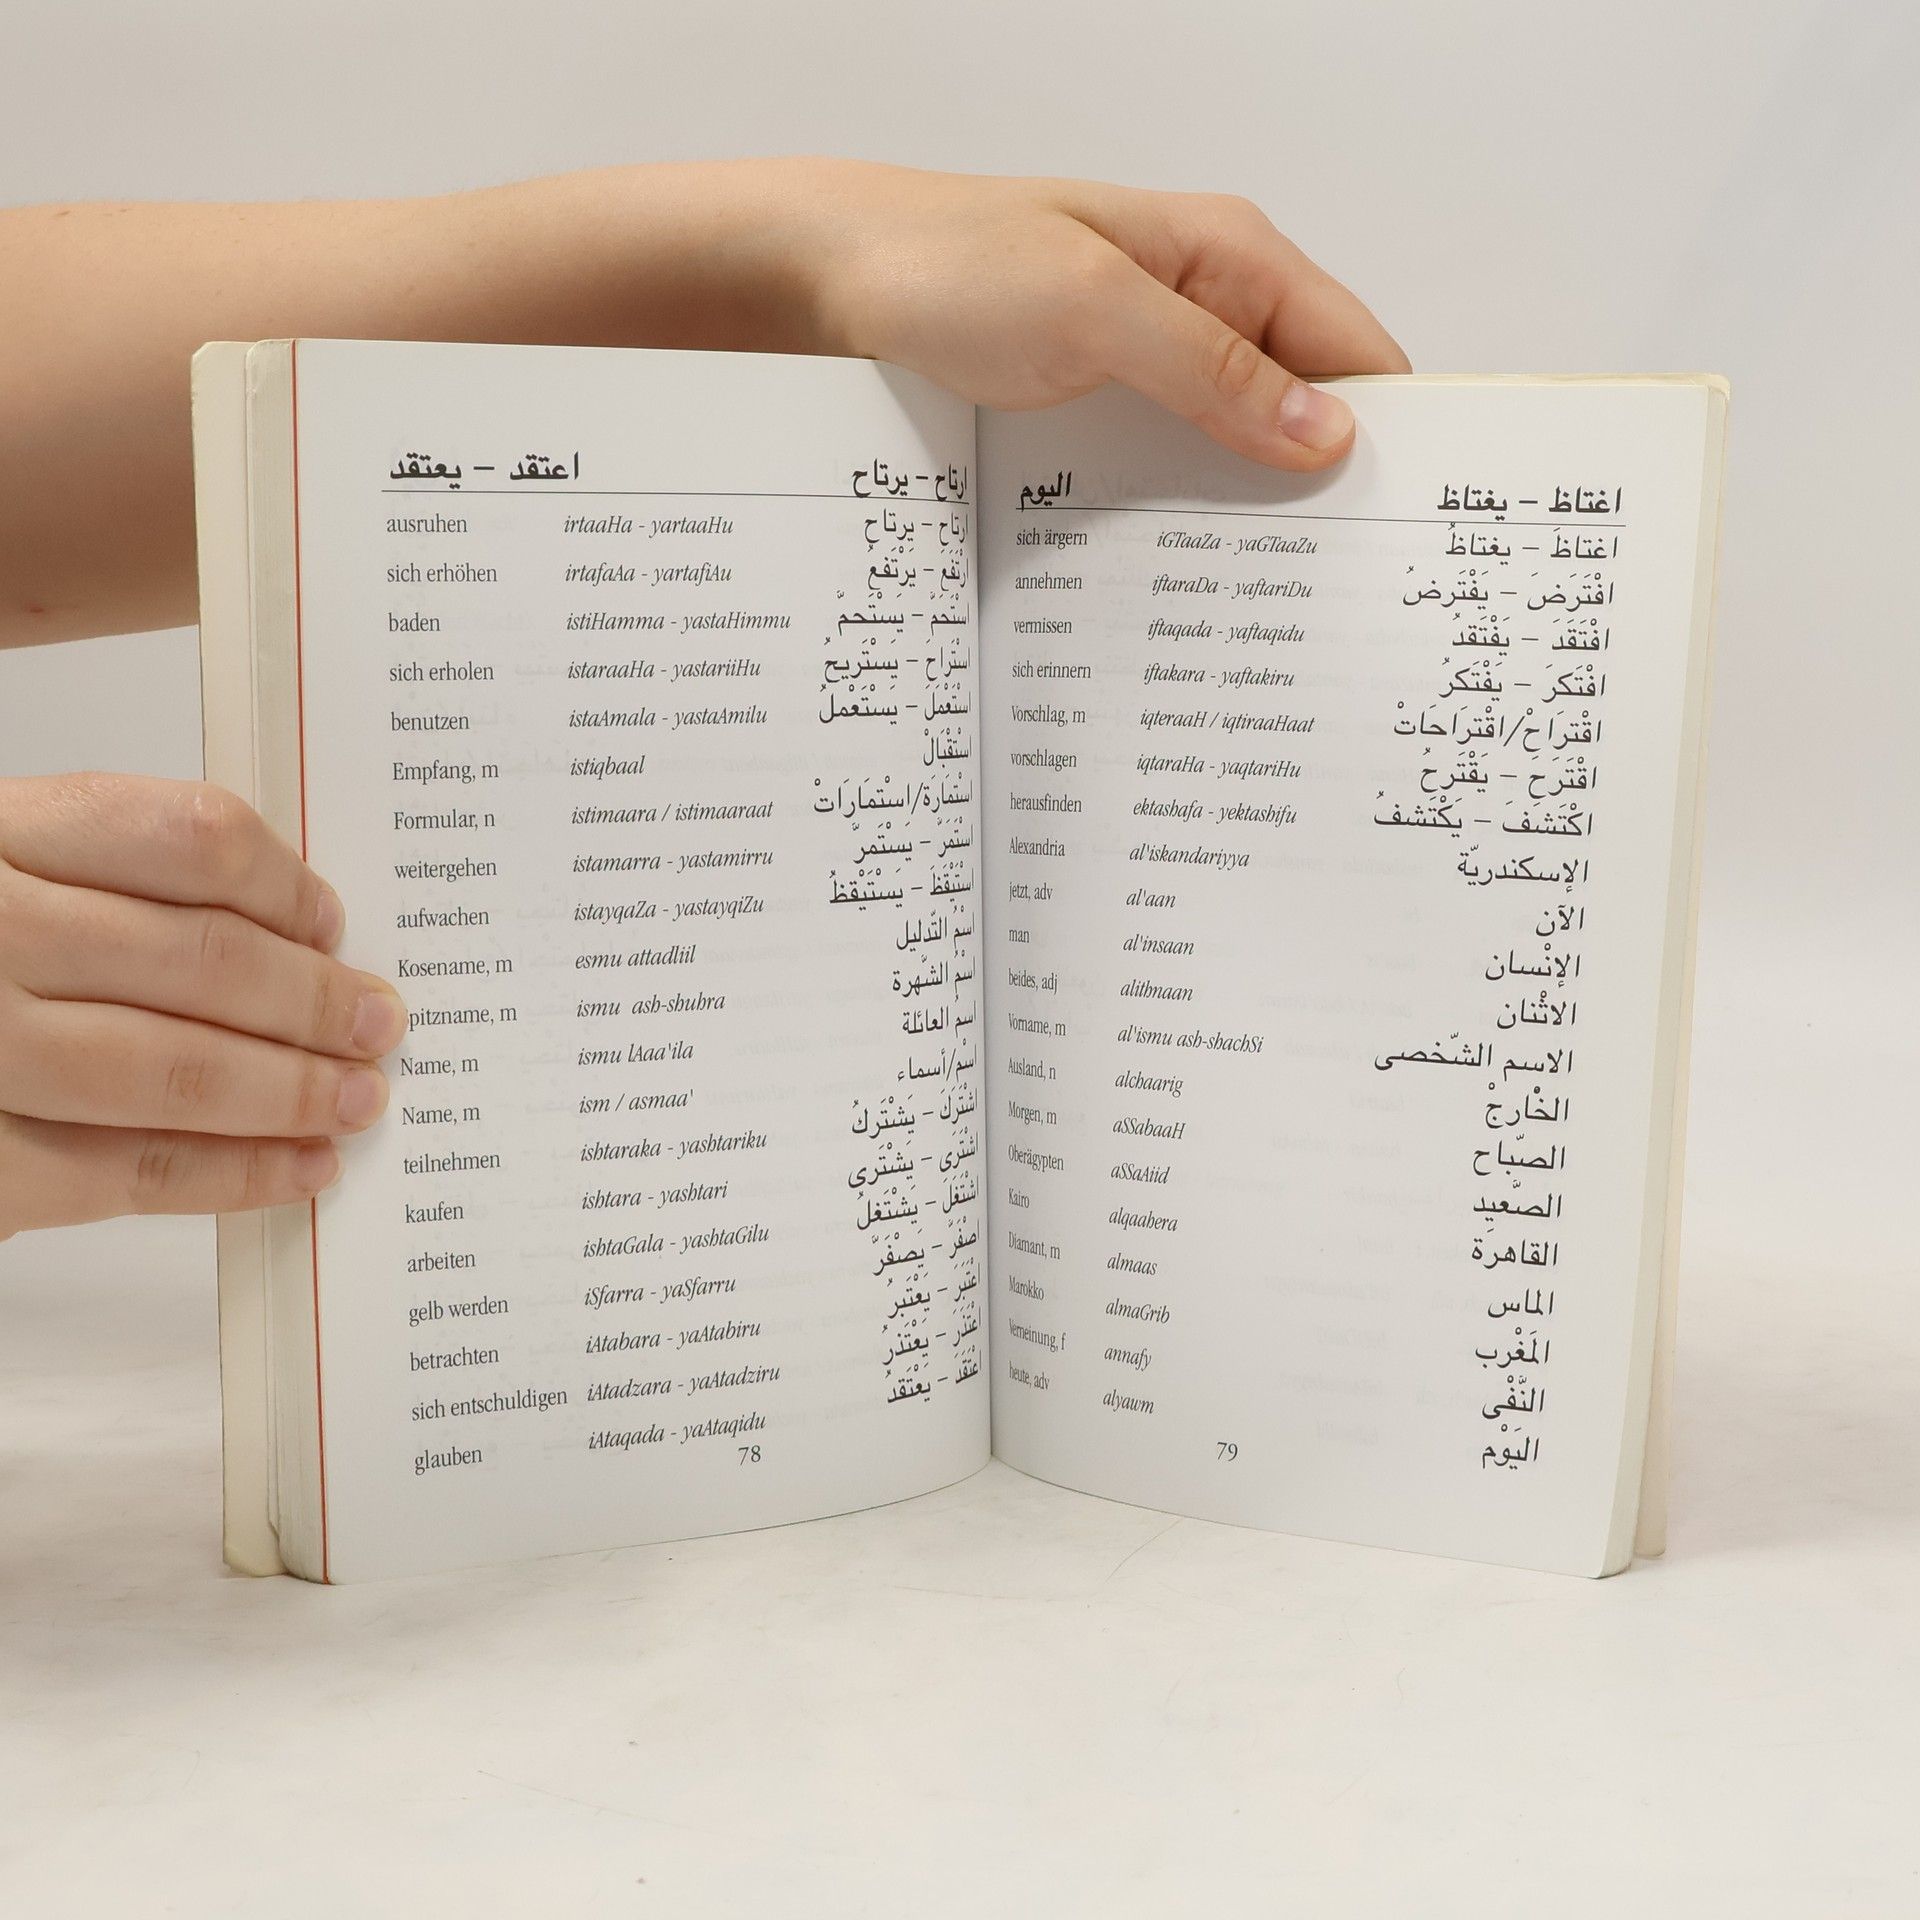 اعتقد – يعتقد ارتاح – يرتاح
ausruhen irtaaHa - yartaaHu ارتاح – يرتاح
sich erhöhen irtafaAa - yartafiAu ارْتَفَعَ – يَرْتَفعُ
baden istiHamma - yastaHimmu اسْتَحَمَّ – يَسْتَحمَّ
sich erholen istaraaHa - yastariiHu اسْتَراحَ – يَسْتَريحُ
benutzen istaAmala - yastaAmilu اسْتَعْمَلَ – يَسْتَعْملُ
Empfang, m istiqbaal اسْتقْبَالْ
Formular, n istimaara / istimaaraat اسْتمَارَة/اسْتمَارَاتْ
weitergehen istamarra - yastamirru اسْتَمَرَّ – يَسْتَمرَّ
aufwachen istayqaZa - yastayqiZu اسْتَيْقَظَ – يَسْتَيْقظُ
Kosename, m esmu attadliil اسْمُ التّدليل
pitzname, m ismu ash-shuhra اسْمُ الشّهرة
Name, m ismu lAaa'ila اسمُ العائلة
Name, m ism / asmaa' اسْم/أسماء
teilnehmen ishtaraka - yashtariku اشْتَركَ – يَشْتَركُ
kaufen ishtara - yashtari اشْتَرَى – يَشْتَرى
arbeiten ishtaGala - yashtaGilu اشْتَغَلَ – يَشْتَغلُ
gelb werden iSfarra - yaSfarru اصْفَرَّ – يَصْفَرَّ
betrachten iAtabara - yaAtabiru اعْتَبَرَ – يَعْتَبرُ
sich entschuldigen iAtadzara - yaAtadziru اعْتَذَرَ – يَعْتَذرُ
glauben iAtaqada - yaAtaqidu اعْتَقَدَ – يَعْتَقدُ
78
اليوم اغتاظ – يغتاظ
sich ärgern iGTaaZa - yaGTaaZu اغتاظَ – يغتاظُ
annehmen iftaraDa - yaftariDu افْتَرَضَ – يَفْتَرضُ
vermissen iftaqada - yaftaqidu افْتَقَدَ – يَفْتَقدُ
sich erinnern iftakara - yaftakiru افْتَكَرَ – يَفْتَكرُ
Vorschlag, m iqteraaH / iqtiraaHaat اقْترَاحْ/اقْترَاحَاتْ
vorschlagen iqtaraHa - yaqtariHu اقْتَرَحَ – يَقْتَرحُ
herausfinden ektashafa - yektashifu اكْتَشَفَ – يَكْتَشفُ
Alexandria al'iskandariyya الإسكندريّة
jetzt, adv al'aan الآن
man al'insaan الإنْسان
beides, adj alithnaan الاثْنان
Vorname, m al'ismu ash-shachSi الاسم الشّخصى
Ausland, n alchaarig الخْارجْ
Morgen, m aSSabaaH الصّباح
Oberägypten aSSaAiid الصّعيد
Kairo alqaahera القاهرة
Diamant, m almaas الماس
Marokko almaGrib المَغْرب
Verneinung, f annafy النَّفْى
heute, adv alyawm اليَوْم
79